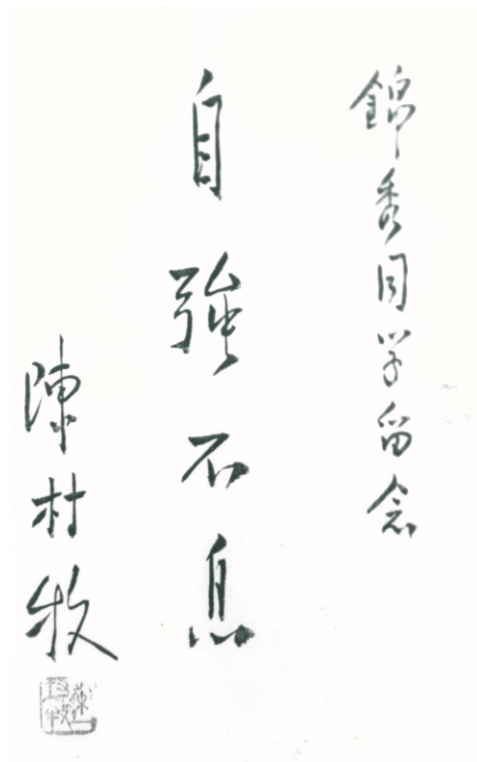 錦秀同学留念
自強不息
陳村牧
陳村牧